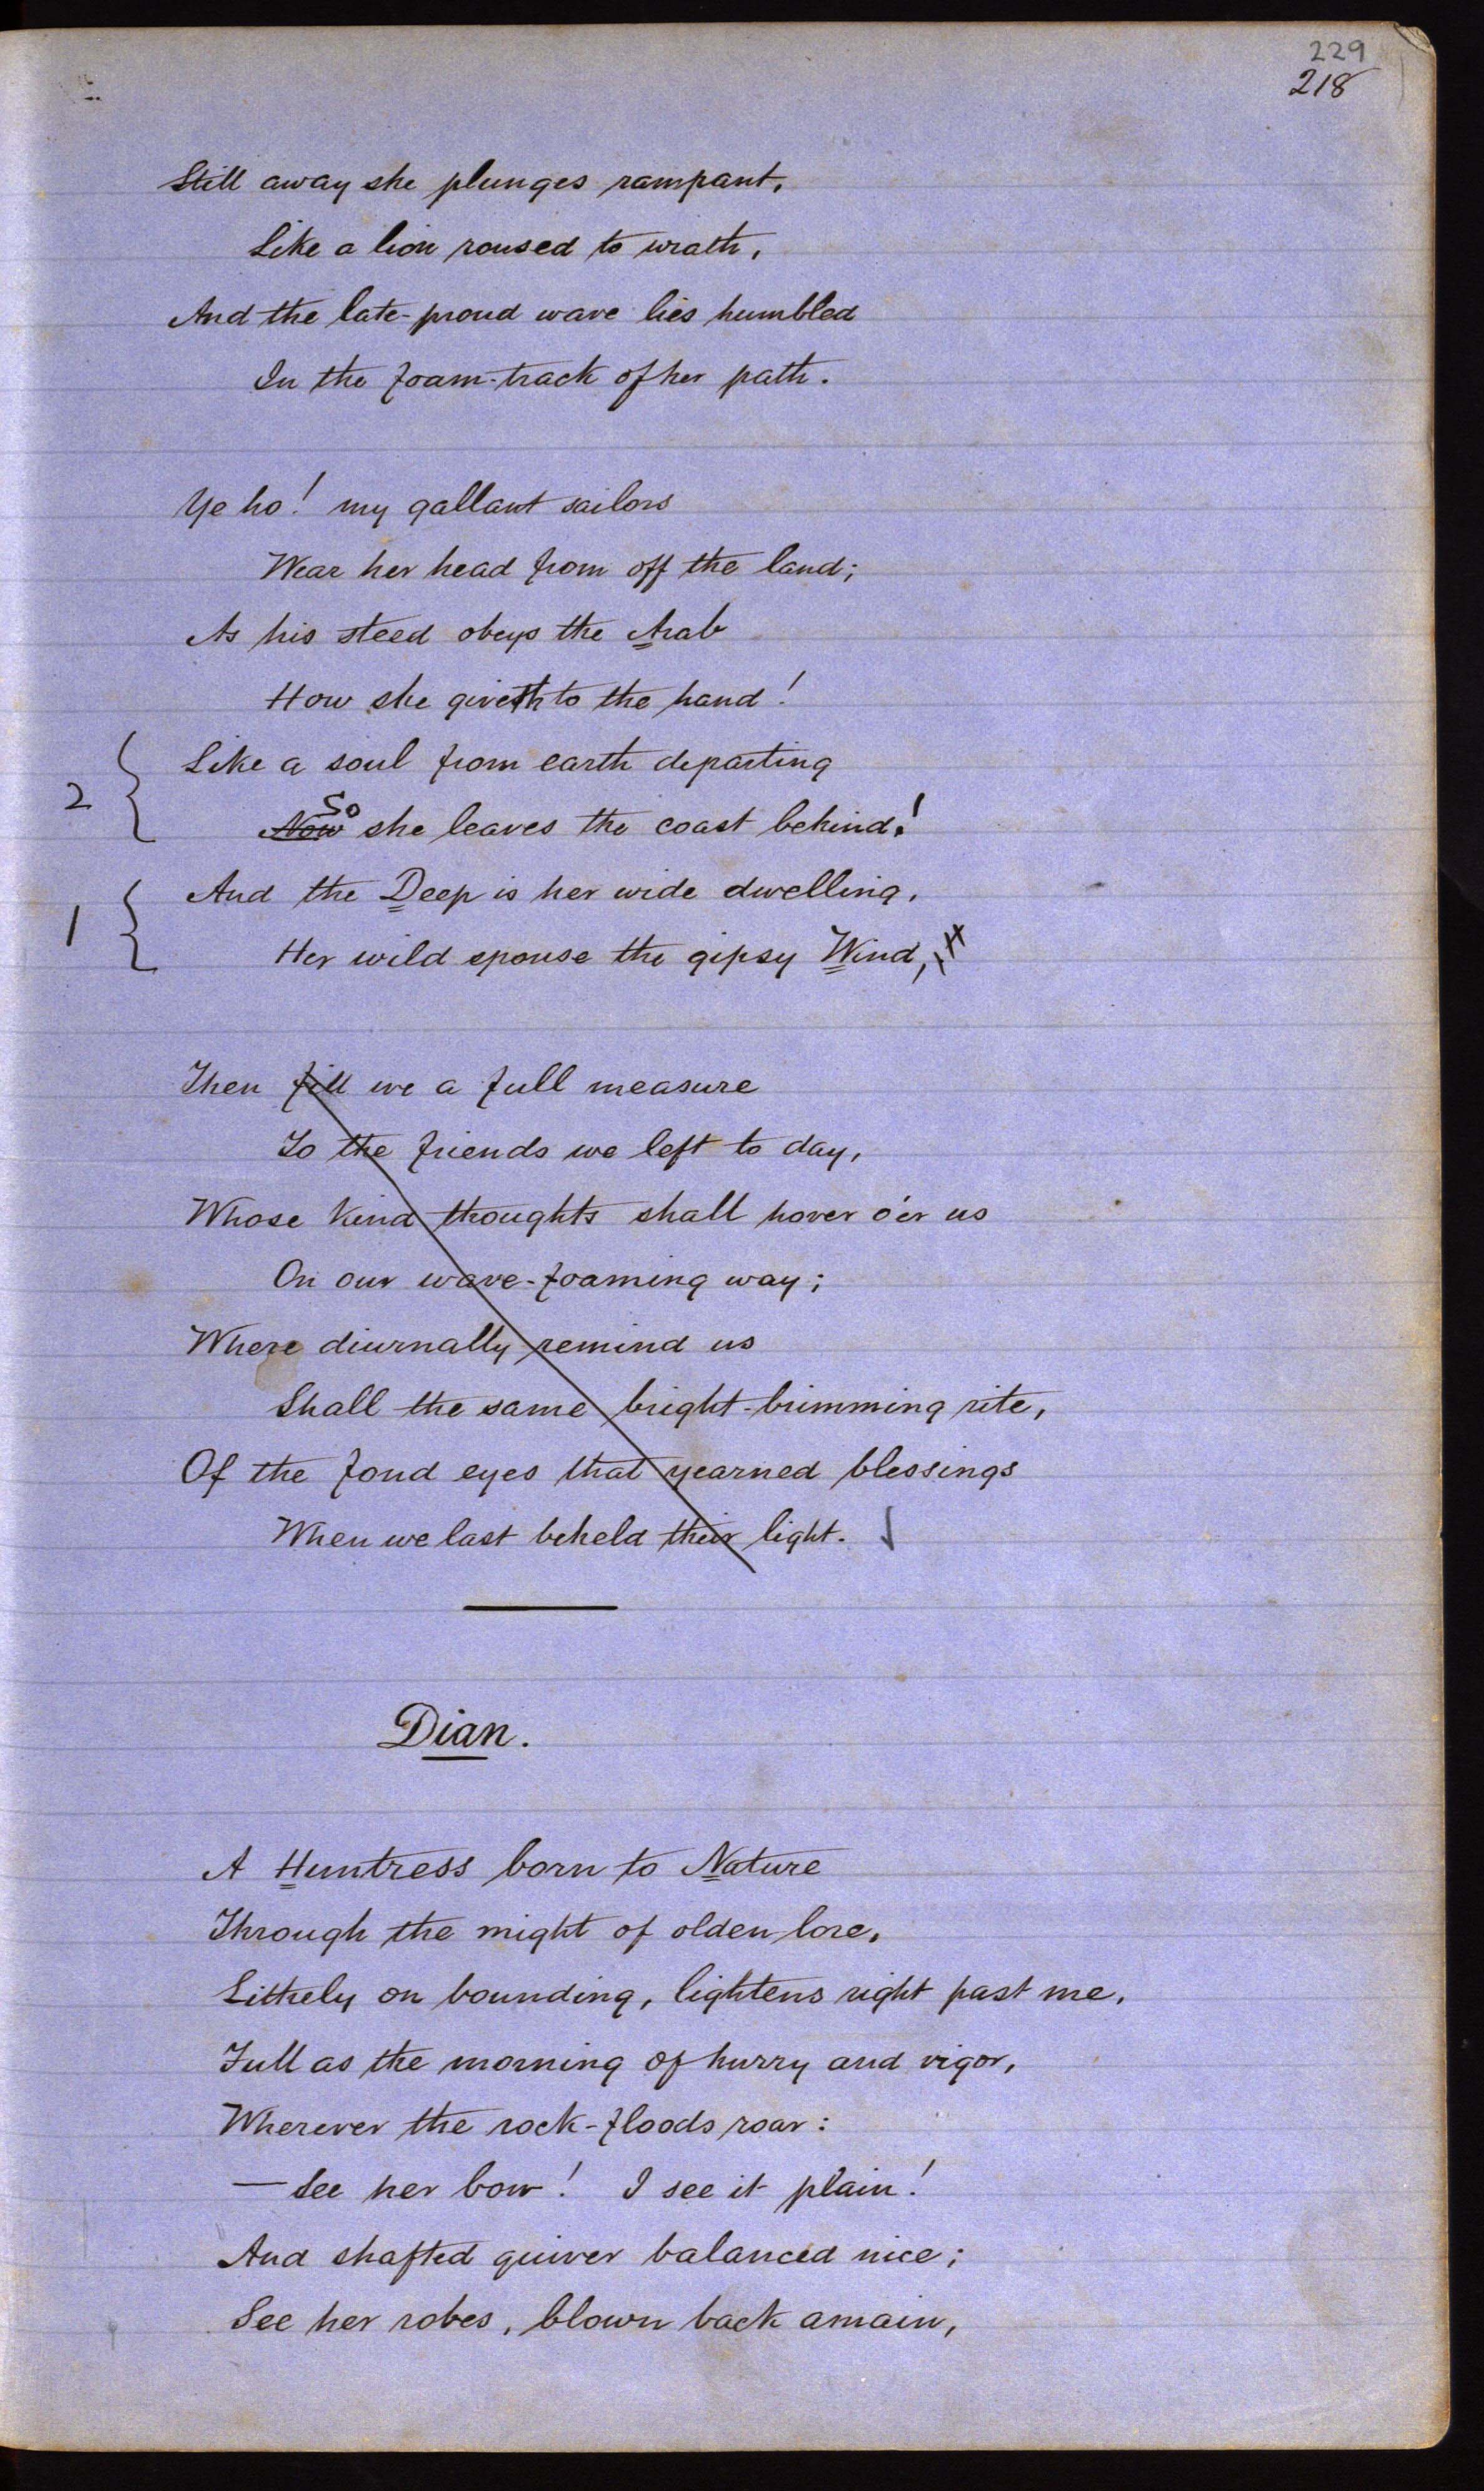 229
218
Still away she plunges rampant,
Like a lion roused to wrath,
And the late-proud wave lies humbled
In the foam-track of her path.
Ye ho! my gallant sailors
Wear her head from off the land;
As his steed obeys the Arab
How she giveth to the hand!
2 { Like a soul from earth departing
So
Now she leaves the coast behind!
1 { And the Deep is her wide dwelling,
Her wild spouse the gipsy Wind,
Then fill we a full measure
To the friends we left to day,
Whose kind thoughts shall hover o'er us
On our wave-foaming way;
Where diurnally remind us
Shall the same bright-brimming rite,
Of the fond eyes that yearned blessings
When we last beheld their light.
Dian.
A Huntress born to Nature
Through the might of olden lore,
Lithely on bounding, lightens right past me,
Full as the morning of hurry and vigor,
Wherever the rock-floods roar:
— See her bow! I see it plain!
And shafted quiver balanced nice;
See her robes, blown back amain,